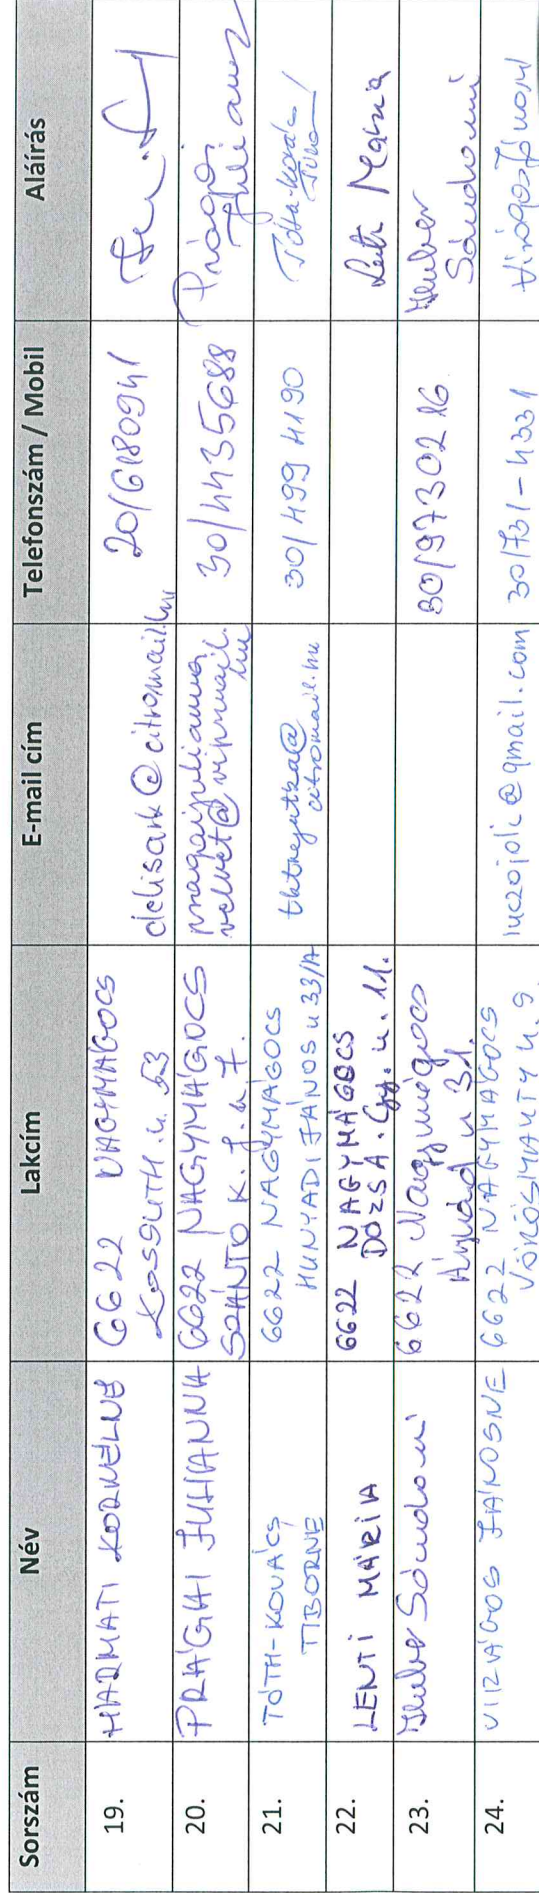 Sorszám Név Lakcím E-mail cím Telefonszám / Mobil Aláírás
19. HARMATI KORNÉLNÉ 6622 NAGYMÁGOCS
KOSSUTH. u. 53 citromail.hu 20/6180941
20. PRÁGAI JULIANNA 6622 NAGYMÁGOCS
SZÁNTÓ K. J. u. 7. pragaijulianna
velvet@vipmail.
hu 30/4435688 Prágai
Julianna
21. TÓTH-KOVÁCS
TIBORNÉ 6622 NAGYMÁGOCS
HUNYADI JÁNOS u 33/A
citromail.hu 30/499 4190
22. LENTI MÁRIA 6622 NAGYMÁGOCS
DÓZSA. Gy. u. 11. Lenti Mária
23. Huber Sándorné 6622 Nagymágocs
Árpád u 31. 30/9730216 Huber
Sándorné
24. VIRÁGOS JÁNOSNÉ 6622 NAGYMÁGOCS
VÖRÖSMARTY u. 9 luczojoli@gmail.com 30/731-4331 Virágos Jánosné